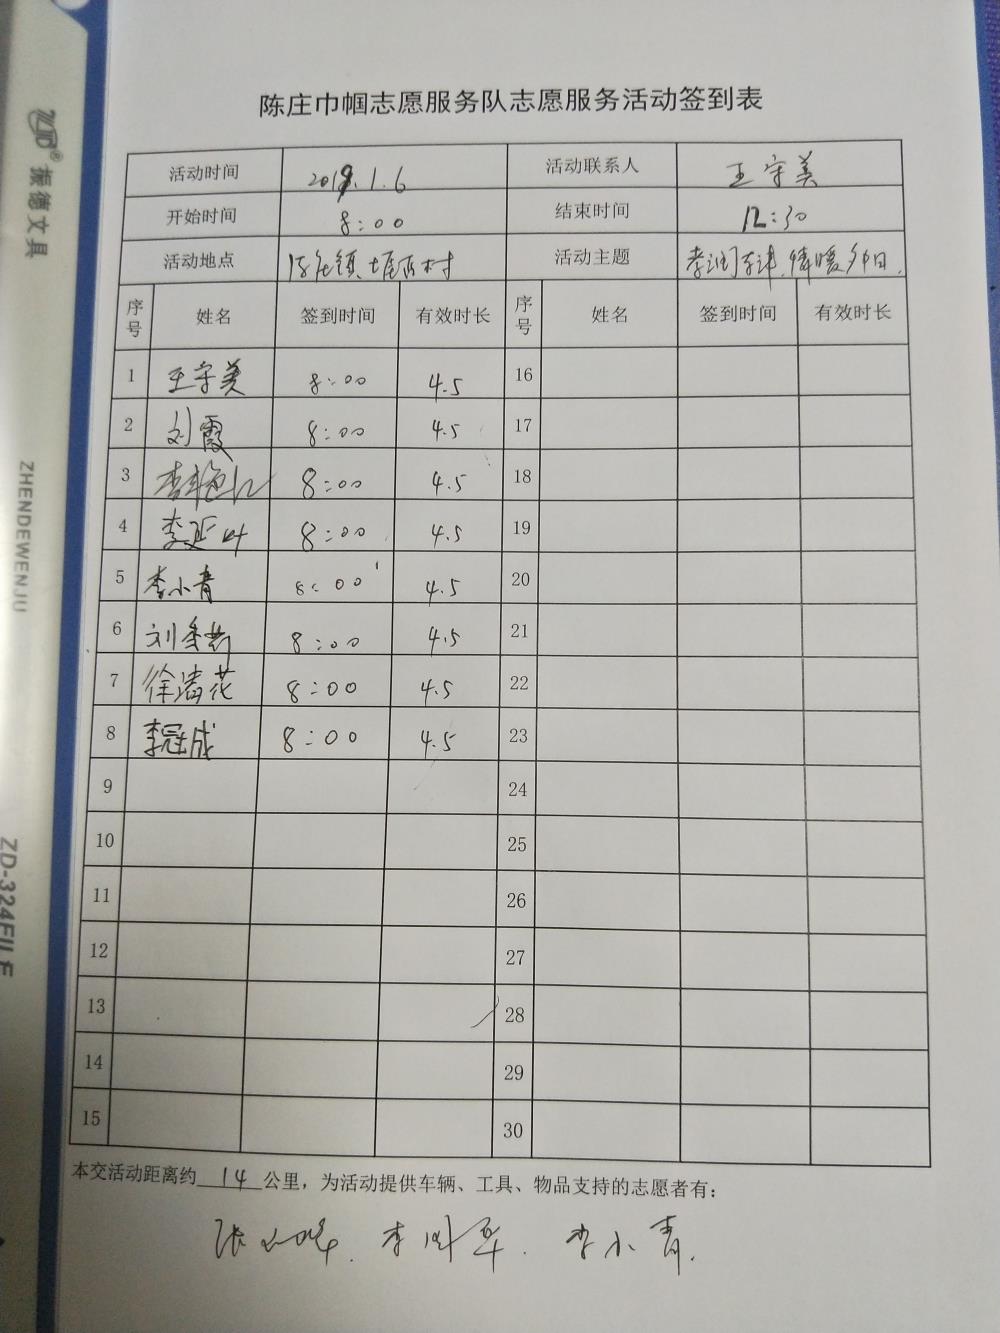 陈庄巾帼志愿服务队志愿服务活动签到表
活动时间 2019.1.6 活动联系人 王守美
开始时间 8:00 结束时间 12:30
活动地点 陈庄镇 村 活动主题 孝润东津.情暖夕阳.
序号 姓名 签到时间 有效时长 序号 姓名 签到时间 有效时长
1 王守美 8:00 4.5 16
2 刘霞 8:00 4.5 17
3 李艳红 8:00 4.5 18
4 李延叶 8:00 4.5 19
5 李小青 8:00 4.5 20
6 刘秀 8:00 4.5 21
7 徐清花 8:00 4.5 22
8 李冠成 8:00 4.5 23
9 24
10 25
11 26
12 27
13 28
14 29
15 30
本交活动距离约 14 公里，为活动提供车辆、工具、物品支持的志愿者有：
张 . 李 华. 李小青.
ZD® 振德文具
ZHENDEWENJU
ZD-324FILE